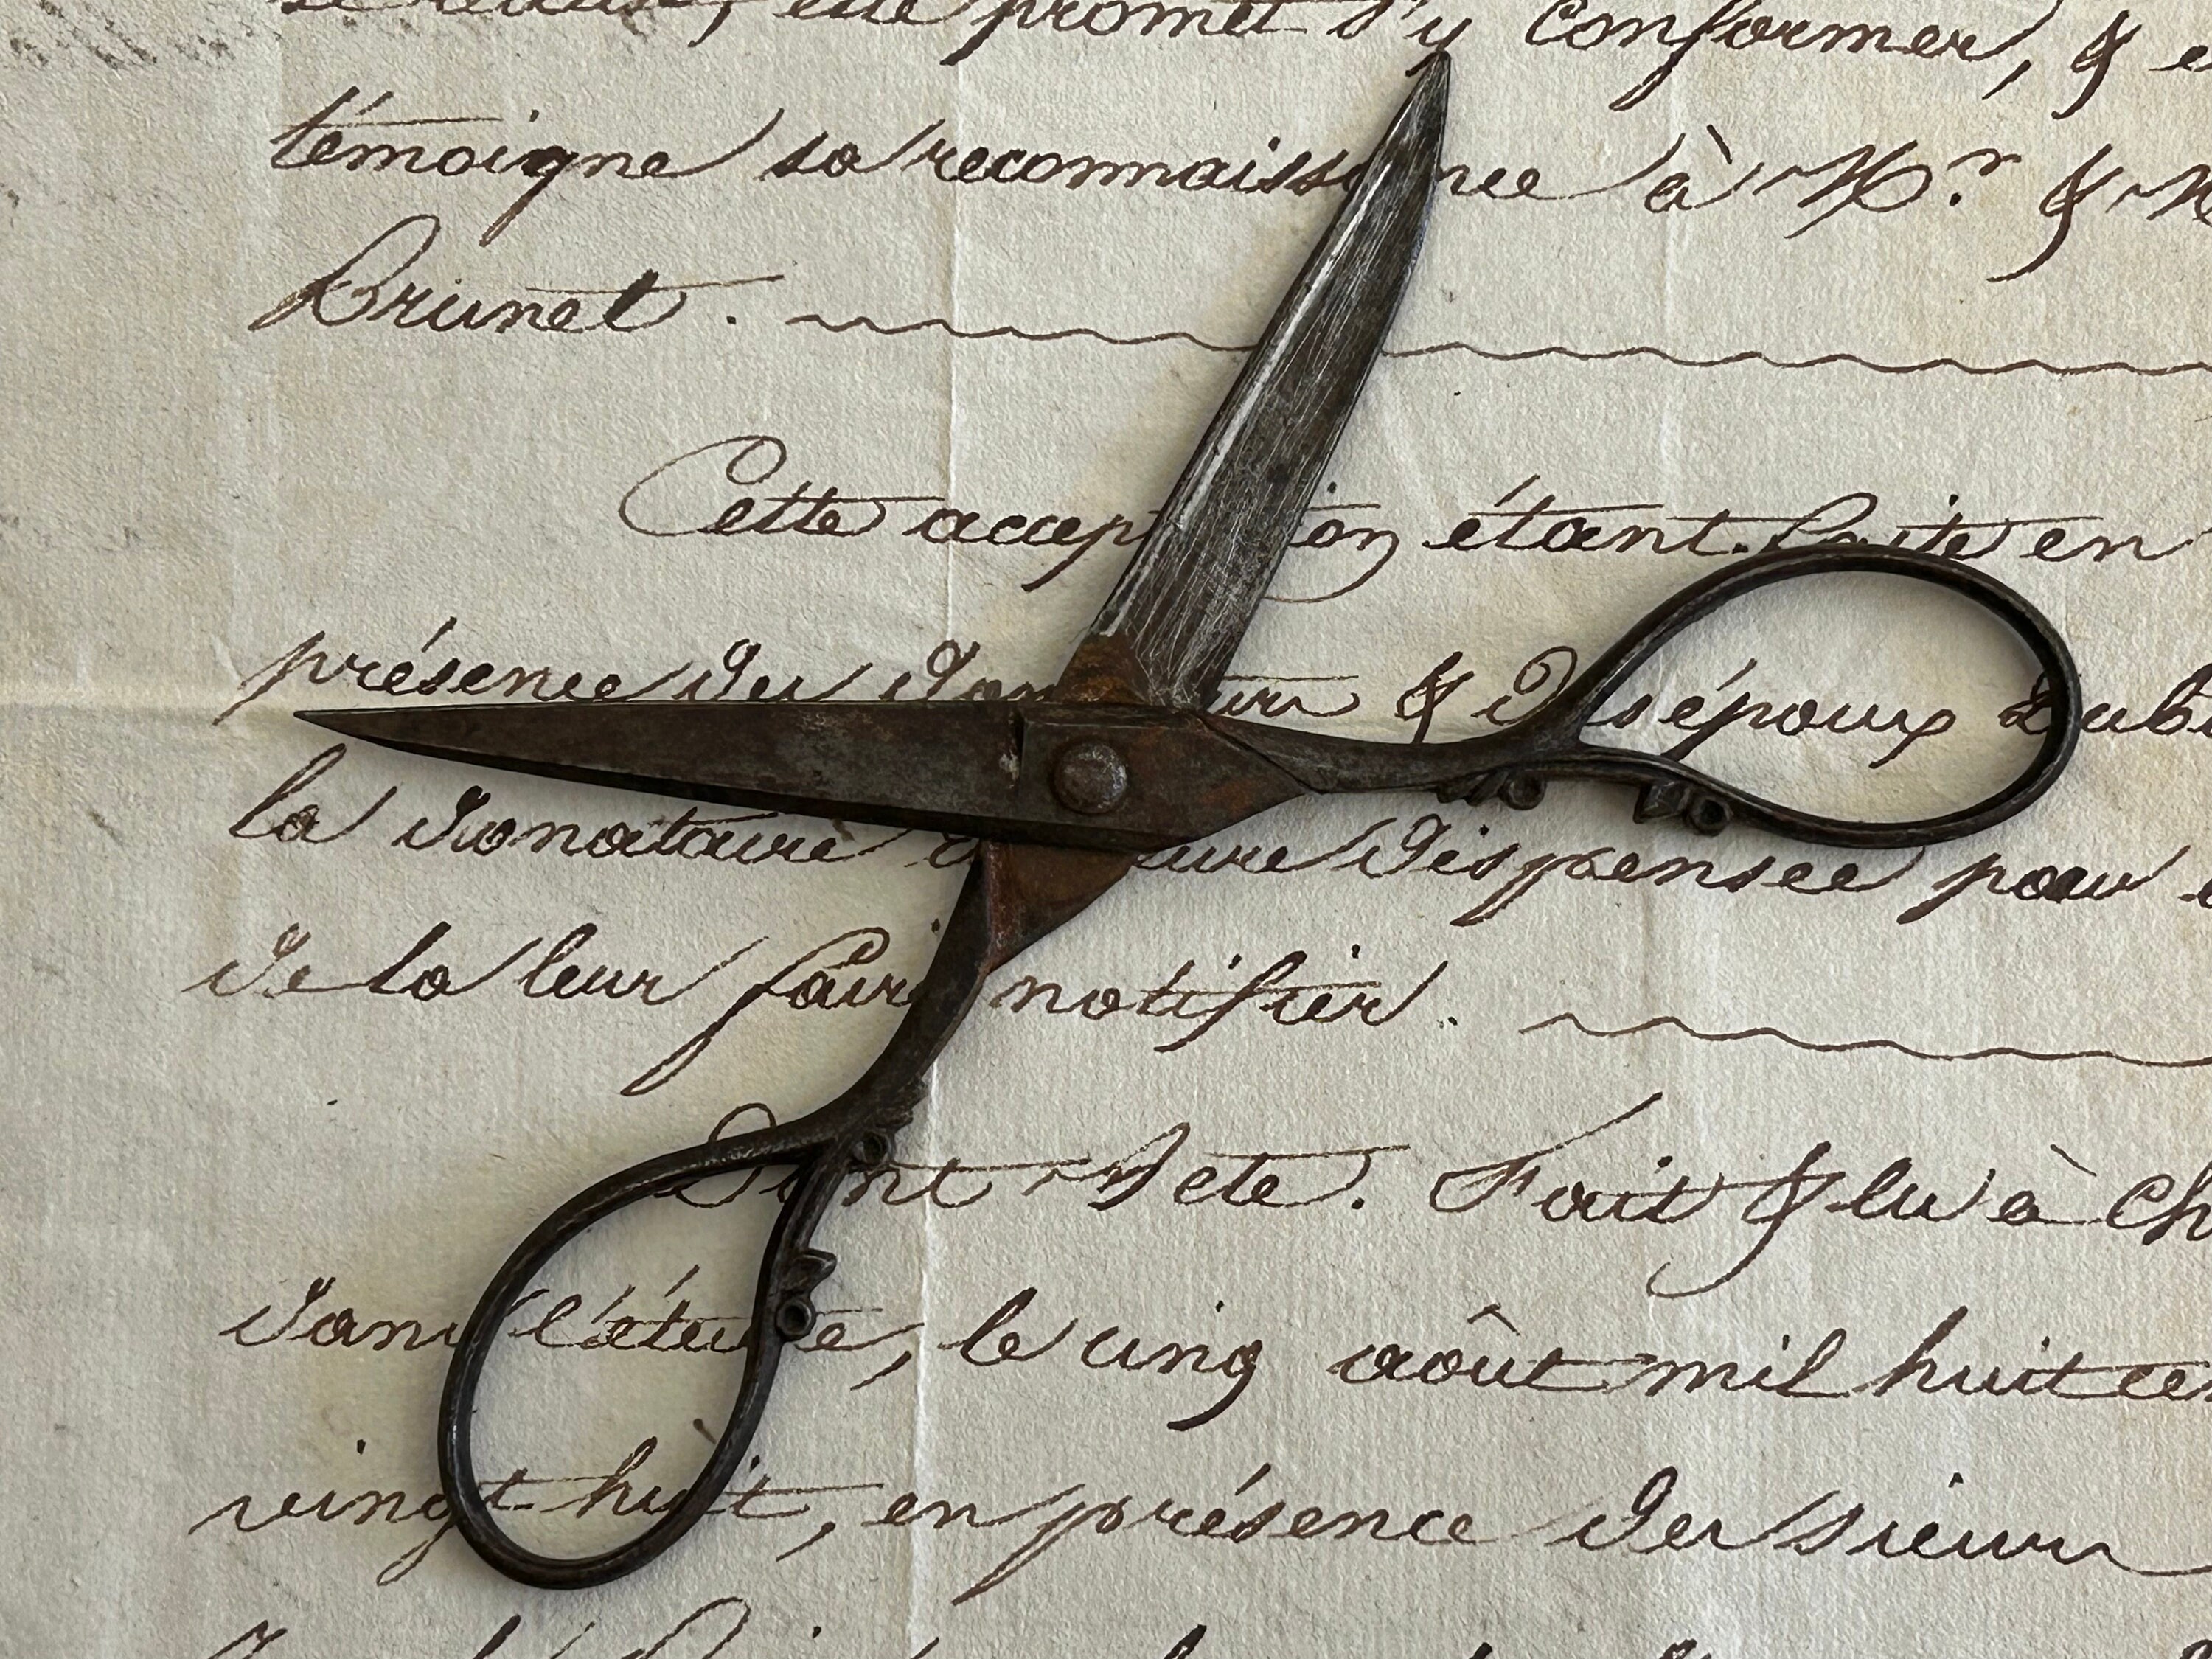 elle promet d'y conformer, &
témoigne sa reconnaissance à Mr. &
Brunet.
Cette acceptation étant faite en
présence des donateurs & des époux Dub
la donataire demeure dispensée pour
de la leur faire notifier.
Dont Acte. Fait & lu à Ch
dans l'étude, le cinq août mil huit cent
vingt huit, en présence des sieurs